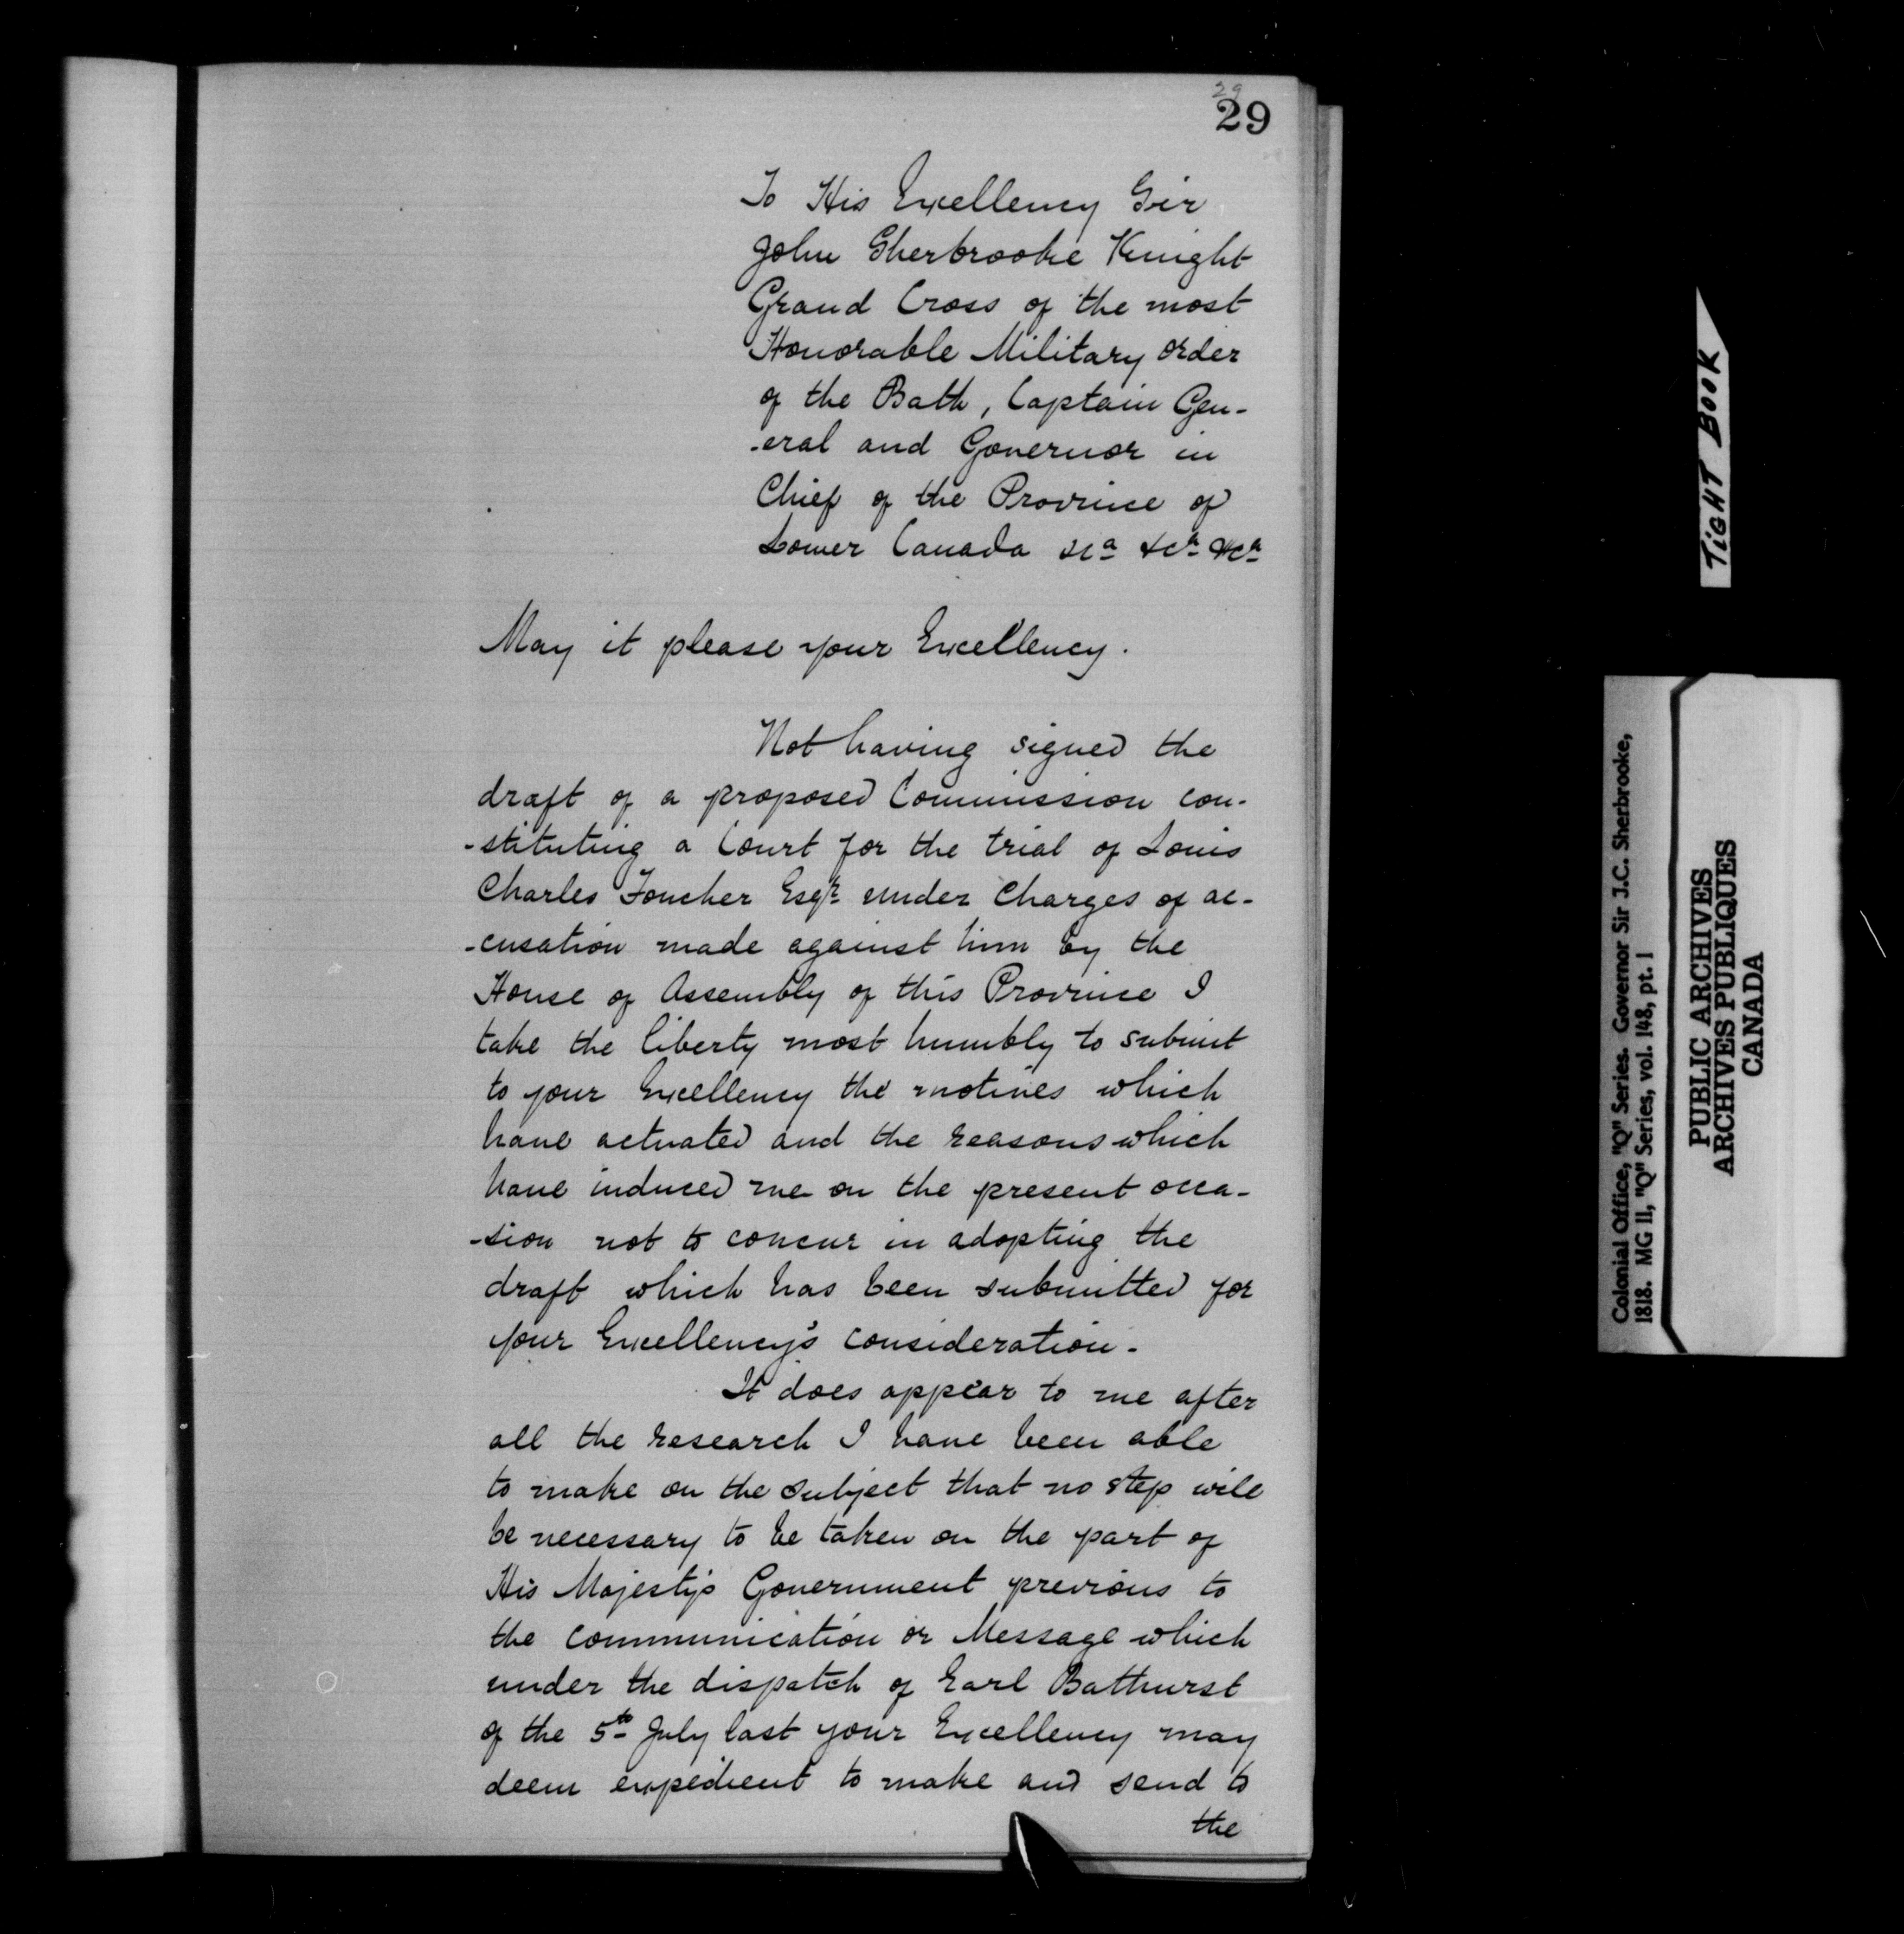 29
29
To His Excellency Sir
John Sherbrooke Knight
Grand Cross of the most
Honorable Military Order
of the Bath, Captain Gen-
-eral and Governor in
Chief of the Province of
Lower Canada &ca &ca &ca
May it please your Excellency.
Not having signed the
draft of a proposed Commission con-
-stituting a Court for the trial of Louis
Charles Foucher Esqr under Charges of ac-
-cusation made against him by the
House of Assembly of this Province I
take the liberty most humbly to submit
to your Excellency the motives which
have actuated and the reasons which
have induced me on the present occa-
-sion not to concur in adopting the
draft which has been submitted for
your Excellency's consideration.
It does appear to me after
all the research I have been able
to make on the subject that no step will
be necessary to be taken on the part of
His Majesty's Government previous to
the communication or Message which
under the dispatch of Earl Bathurst
of the 5th July last your Excellency may
deem expedient to make and send to
the
TIGHT BOOK
Colonial Office, "Q" Series. Governor Sir J.C. Sherbrooke,
1818. MG 11, "Q" Series, vol. 148, pt. 1
PUBLIC ARCHIVES
ARCHIVES PUBLIQUES
CANADA